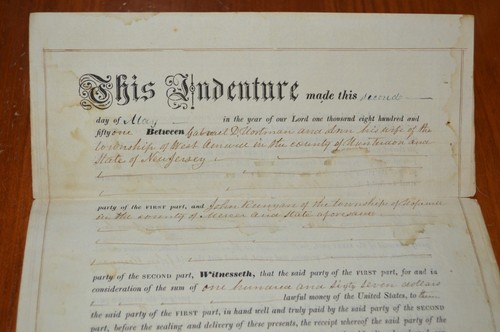 This Indenture made this second
day of May in the year of our Lord one thousand eight hundred and
fifty one Between Gabriel D. Hortman and Ann his wife of the
township of West Amwell in the county of Hunterdon and
State of New Jersey
party of the FIRST part, and John Runyon of the township of
in the county of Mercer and State aforesaid
party of the SECOND part, Witnesseth, that the said party of the FIRST part, for and in
consideration of the sum of one hundred and sixty seven dollars
lawful money of the United States, to them
the said party of the FIRST part, in hand well and truly paid by the said party of the SECOND
part, before the sealing and delivery of these presents, the receipt whereof the said party of the